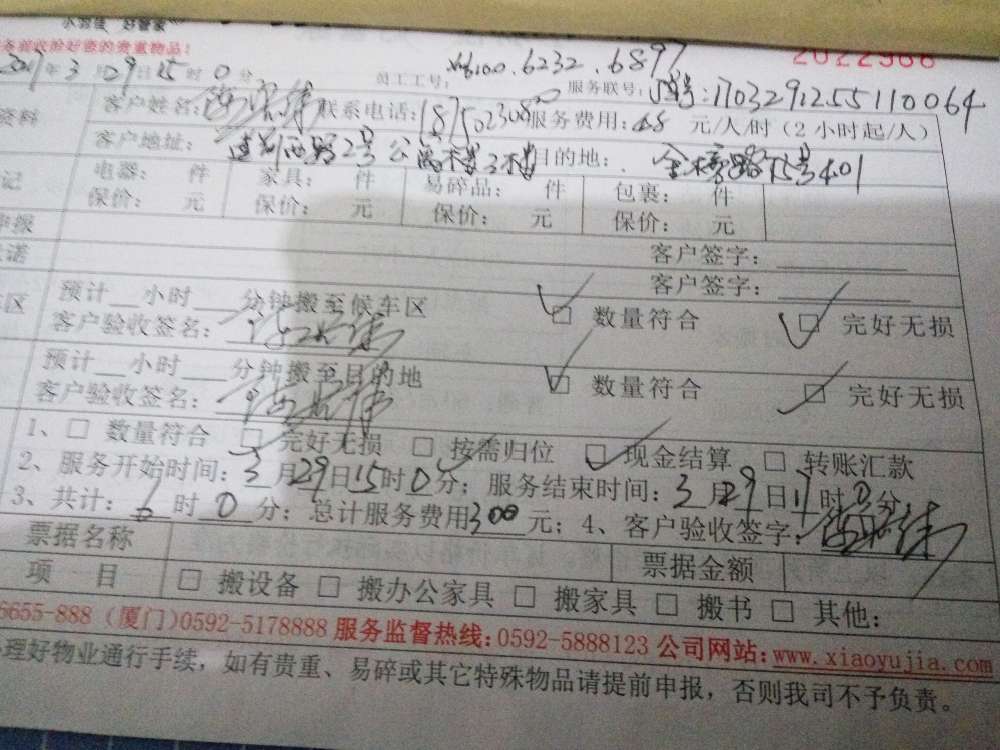 小羽佳 好管家
的贵重物品!
2022966
年3月29日15时0分 员工工号: 6232.6897 服务联号: 1703291255110064
资料 客户姓名: 联系电话: 服务费用: 48 元/人/时(2小时起/人)
客户地址: 2号公寓楼3楼 目的地: 金榜路 号401
记 电器: 件 家具: 件 易碎品: 件 包裹: 件
保价: 元 保价: 元 保价: 元 保价: 元
申报 客户签字:
诺 客户签字:
车区 预计__小时___分钟搬至候车区 数量符合 完好无损
客户验收签名:
预计__小时___分钟搬至目的地 数量符合 完好无损
客户验收签名:
1、□ 数量符合 □ 完好无损 □ 按需归位 □ 现金结算 □ 转账汇款
2、服务开始时间: 3月29日15时0分; 服务结束时间: 3月29日17时0分;
3、共计: 6时0分; 总计服务费用300元; 4、客户验收签字:
票据名称 票据金额
项 目 □ 搬设备 □ 搬办公家具 □ 搬家具 □ 搬书 □ 其他:
6655-888 (厦门)0592-5178888 服务监督热线:0592-5888123 公司网站:www.xiaoyujia.com
理好物业通行手续,如有贵重、易碎或其它特殊物品请提前申报,否则我司不予负责。